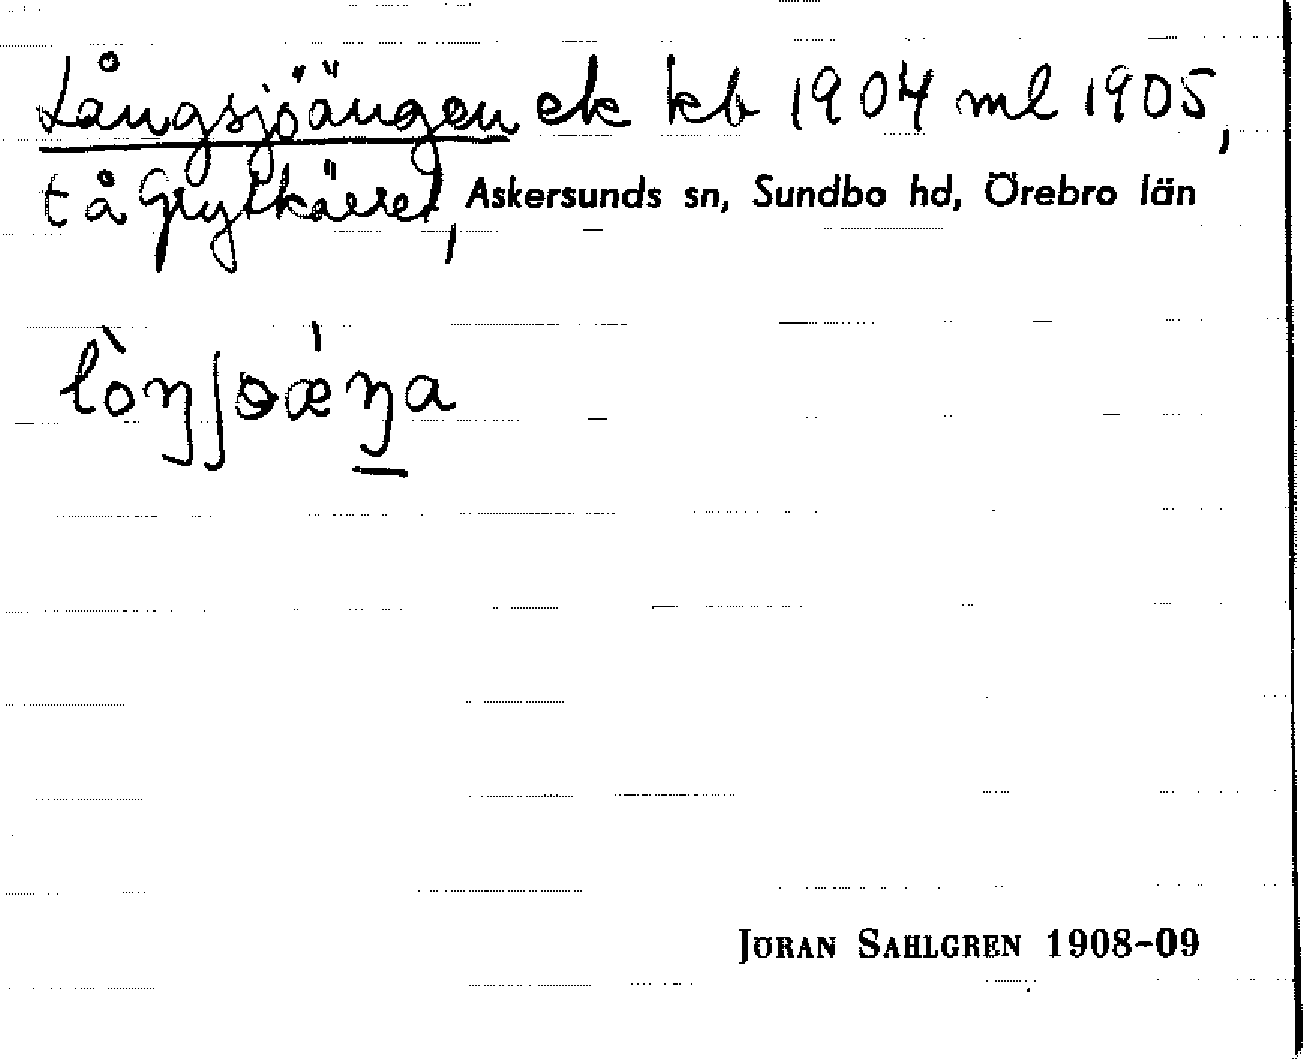 Långsjöängen ek kb 1904 ml 1905,
t å Grytkärret, Askersunds sn, Sundbo hd, Örebro län
lòŋʃɷǽŋa
JÖRAN SAHLGREN 1908-09